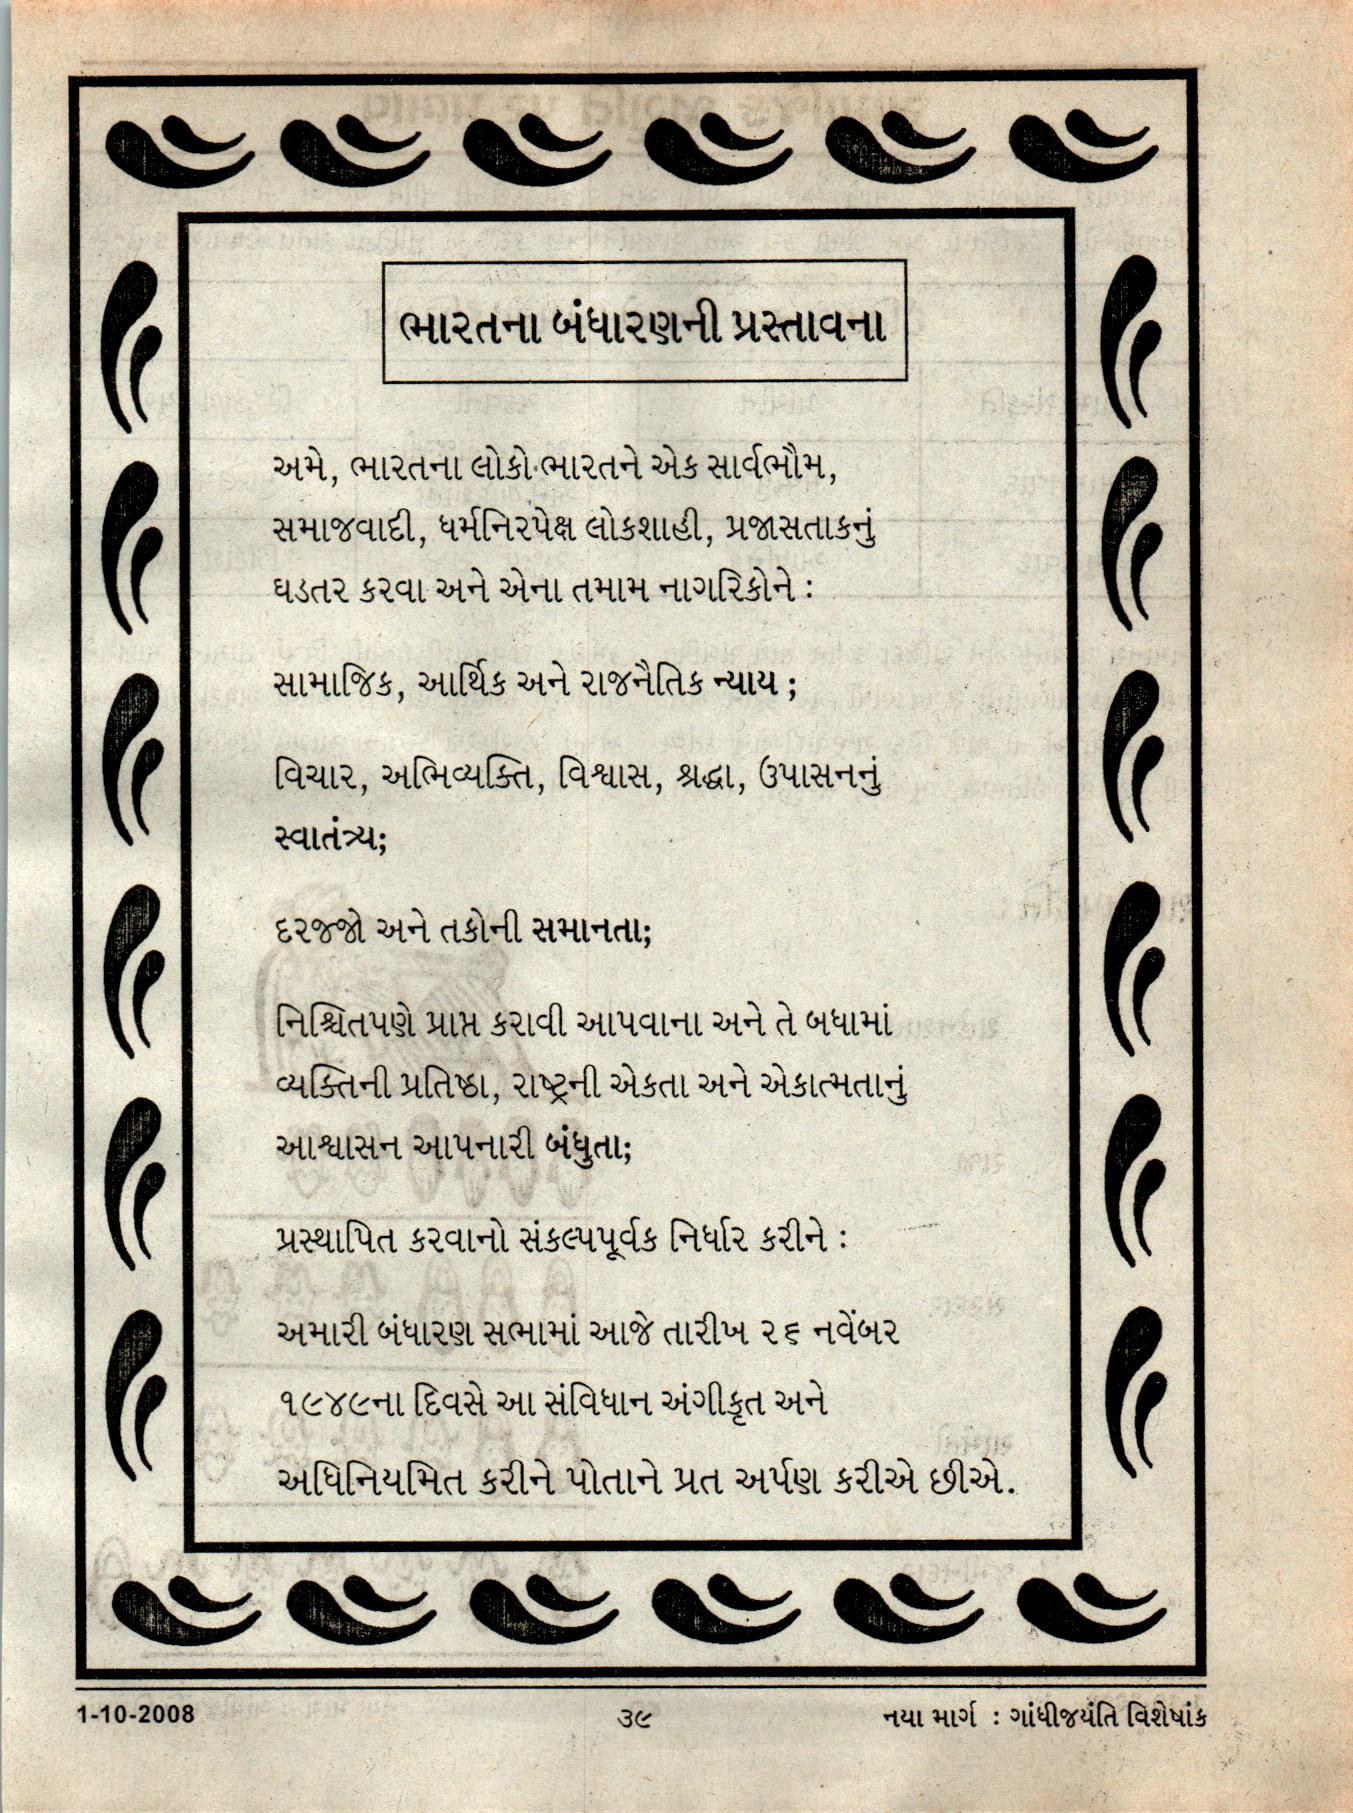 ભારતના બંધારણની પ્રસ્તાવના
અમે, ભારતના લોકો ભારતને એક સાર્વભૌમ,
સમાજવાદી, ધર્મનિરપેક્ષ લોકશાહી, પ્રજાસતાકનું
ઘડતર કરવા અને એના તમામ નાગરિકોને :
સામાજિક, આર્થિક અને રાજનૈતિક ન્યાય ;
વિચાર, અભિવ્યક્તિ, વિશ્વાસ, શ્રદ્ધા, ઉપાસનનું
સ્વાતંત્ર્ય;
દરજ્જો અને તકોની સમાનતા;
નિશ્ચિતપણે પ્રાપ્ત કરાવી આપવાના અને તે બધામાં
વ્યક્તિની પ્રતિષ્ઠા, રાષ્ટ્રની એકતા અને એકાત્મતાનું
આશ્વાસન આપનારી બંધુતા;
પ્રસ્થાપિત કરવાનો સંકલ્પપૂર્વક નિર્ધાર કરીને :
અમારી બંધારણ સભામાં આજે તારીખ ૨૬ નવેંબર
૧૯૪૯ના દિવસે આ સંવિધાન અંગીકૃત અને
અધિનિયમિત કરીને પોતાને પ્રત અર્પણ કરીએ છીએ.
1-10-2008 ૩૯ નયા માર્ગ : ગાંધીજયંતિ વિશેષાંક